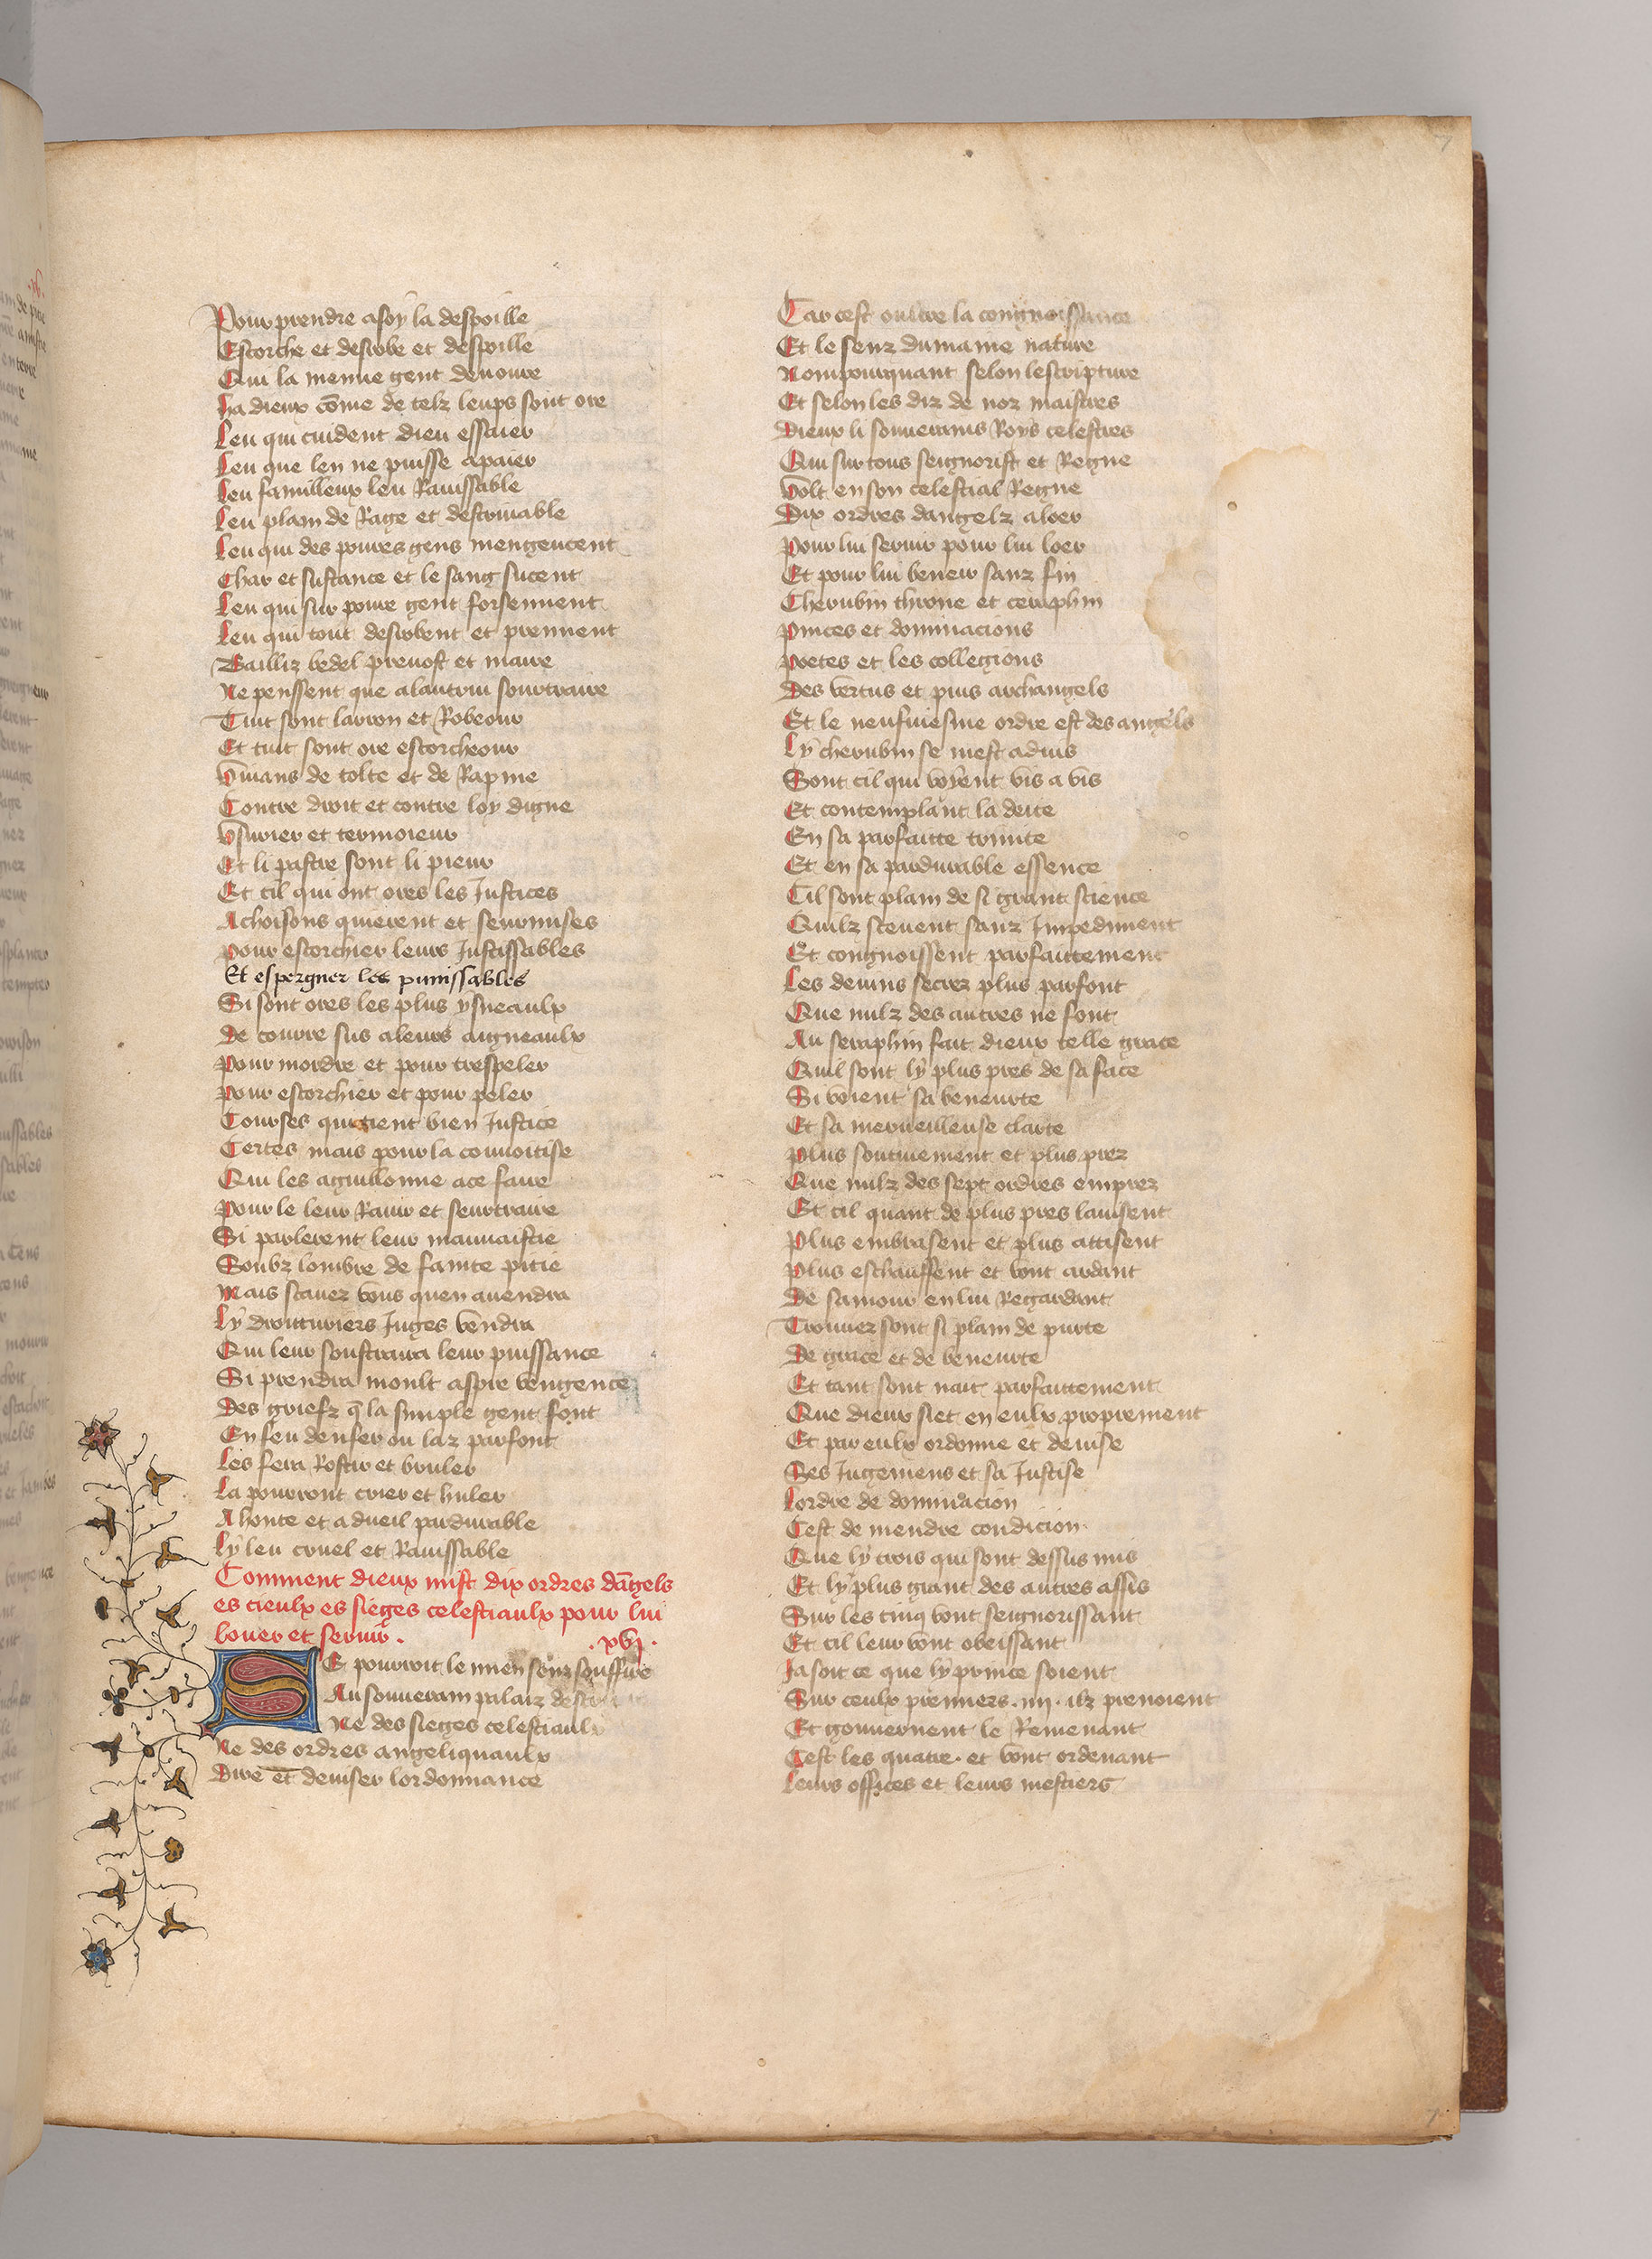 Pour prendre a soy la despoille
Escorche et desrobe et despoille
Qui la menue gent deuoure
ha dieux cōme de telz leups sont ore
Leu qui cuident dieu essaier
Leu que len ne puisse apaier
Leu familleux leu Rauissable
Leu plain de Rage et destruiable
Leu qui des poures gens mengeucent
Char et sustance et le sang sucent
Leu qui sur poure gent forsennent
Leu qui tout desrobent et prennent
Bailliz bedel preuost et maire
Ne penssent que alautrui sourtraire
Tuit sont larron et Robeour
Et tuit sont ore escorcheour
viuans de tolte et de Rapine
Contre droit et contre loy digne
vsurier et termoieur
Et li pastre sont li pieur
Et cil qui ont ores les Justices
Achoisons quierent et seurmises
pour escorchier leurs Justissables
Et espergner les punissables
Si sont ores les plus ysneaulx
de courre sus aleurs aigneaulx
Pour mordre et pour trespeler
pour escorchier et pour peler
Courses quierent bien Justice
Certes mais pour la couuoitise
Qui les aguillonne ace faire
Pour le leur Rauir et seurtraire
Si parlerent leur mauuaistie
Soubz lombre de fainte pitie
Mais scauez vous quen auendra
Ly droituriers Juges vendra
Qui leur soustraira leur puissance
Si prendra moult aspre vengence
Des griefz q̄ la simple gent font
En feu denfer ou laz parfont
Les fera Rostir et bruler
La pourront crier et huler
A honte et a dueil pardurable
Ly leu cruel et Rauissable
Comment dieux mist dix ordres dāgels
es cieulx es sieges celestiaulx pour lui
louer et seruir .
. xvj .
SE pourroit le mien senz souffire
Au souuerain palaiz
Ne des sieges celestiaulx
Ne des ordres angeliquaulx
Dire et deuiser lordonnance
Car cest oultre la congnoissance
Et le senz dumaine nature
Nompourquant selon lescripture
Et selon les diz de noz maistres
Dieux li souuerains Roys celestres
Qui sur tous seignorist et Regne
volt en son celestial Regne
Dix ordres dangelz aloer
Pour lui seruir pour lui loer
Et pour lui beneir sanz fin
Cherubin throne et ceraphin
Pinces et dominacions
poetes et les collegions
Des vertus et puis archangels
Et le neufuiesme ordre est des angels
Ly cherubin se mest aduis
Sont cil qui voyent vis a vis
Et contemplant la deite
En sa parfaitte trinite
Et en sa pardurable essence
Cil sont plain de si grant science
Quilz sceuent sanz Jnpediment
Et congnoissent parfaittement
Les deuins secrez plus parfont
Que nulz des autres ne font
Au seraphin fait dieux telle grace
Quil sont ly plus pres de sa face
Si voient sa beneurte
Et sa merueilleuse clarte
Plus soutiuement et plus prez
Que nulz des sept ordres emprez
Et cil quant de plus pres lauisent
Plus embrasent et plus attisent
Plus eschauffent et vont ardant
De samour en lui Regardant
Trouuez sont si plain de purte
De grace et de beneurte
Et tant sont nait parfaittement
Que dieux siet en eulx proprement
Et par eulx ordonne et deuise
Ses Jugemens et sa Justise
Lordre de dominacion
Cest de mendre condicion
Que ly trois qui sont dessus mis
Et ly plus grant des autres assis
Sur les cinq vont seignorissant
Et cil leur vont obeissant
Ja soit ce que ly prince soient
Sur ceulx premiers . iiij . ilz prenoient
Et gouuernent le Remenant
Cest les quatre . et vont ordenant
Leurs offices et leurs mestiers